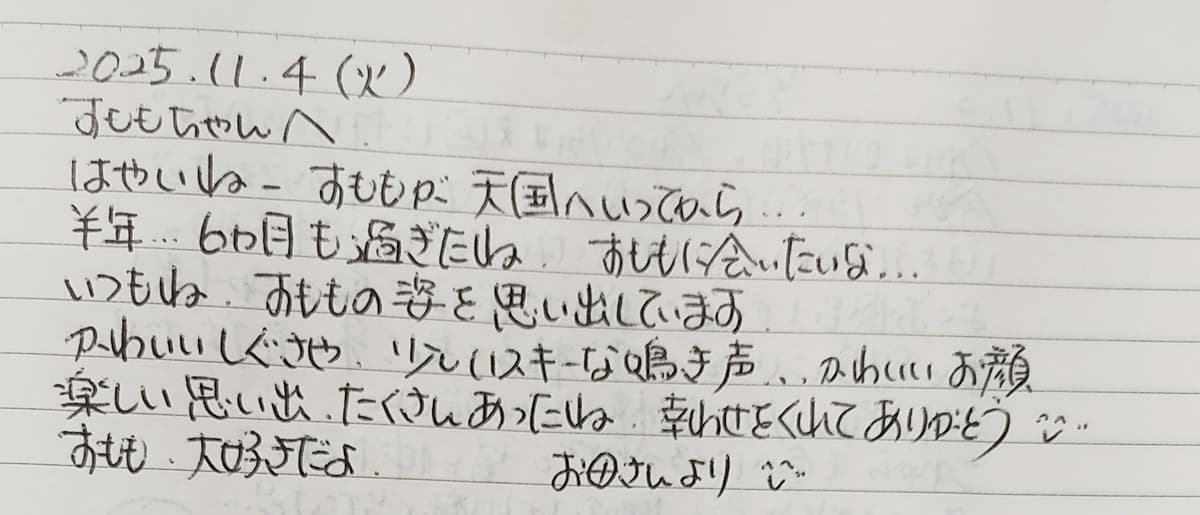 2025.11.4(火)
すももちゃんへ
はやいねー すももが天国へいってから...
半年...6カ月も過ぎたね. すももに会いたいな...
いつもね.すももの姿を思い出しています.
かわいいしぐさや.少しハスキーな鳴き声...かわいいお顔
楽しい思い出.たくさんあったね.幸わせをくれてありがとう
すもも.大好きだよ. お母さんより